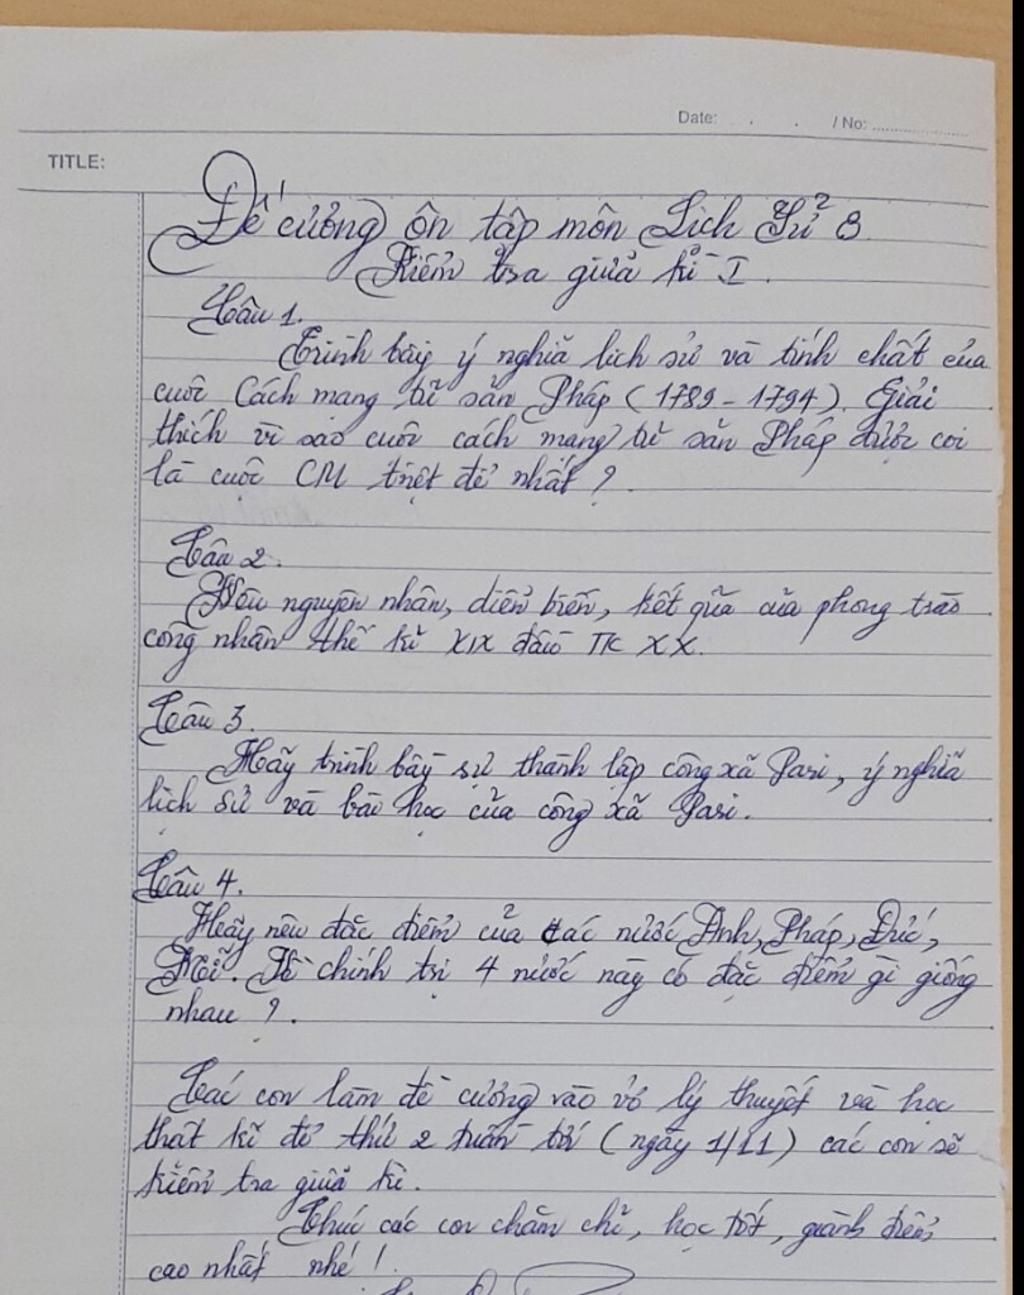 Date: . . / No: ............
TITLE:
Đề cương ôn tập môn Lịch Sử 8
Kiểm tra giữa kì I.
Câu 1.
Trình bày ý nghĩa lịch sử và tính chất của
cuộc Cách mạng tư sản Pháp (1789 - 1794). Giải
thích vì sao cuộc cách mạng tư sản Pháp được coi
là cuộc CM triệt để nhất ?
Câu 2.
Nêu nguyên nhân, diễn biến, kết qủa của phong trào
công nhân thế kỉ XIX đầu TK XX.
Câu 3.
Hãy trình bày sự thành lập công xã Pari, ý nghĩa
lịch sử và bài học của công xã Pari.
Câu 4.
Hãy nêu đặc điểm của các nước Anh, Pháp, Đức,
Mĩ. Về chính trị 4 nước này có đặc điểm gì giống
nhau ?.
Các con làm đề cương vào vở lý thuyết và học
thật kĩ để thứ 2 tuần tới (ngày 1/11) các con sẽ
kiểm tra giữa kì.
Chúc các con chăm chỉ, học tốt, giành điểm
cao nhất nhé !